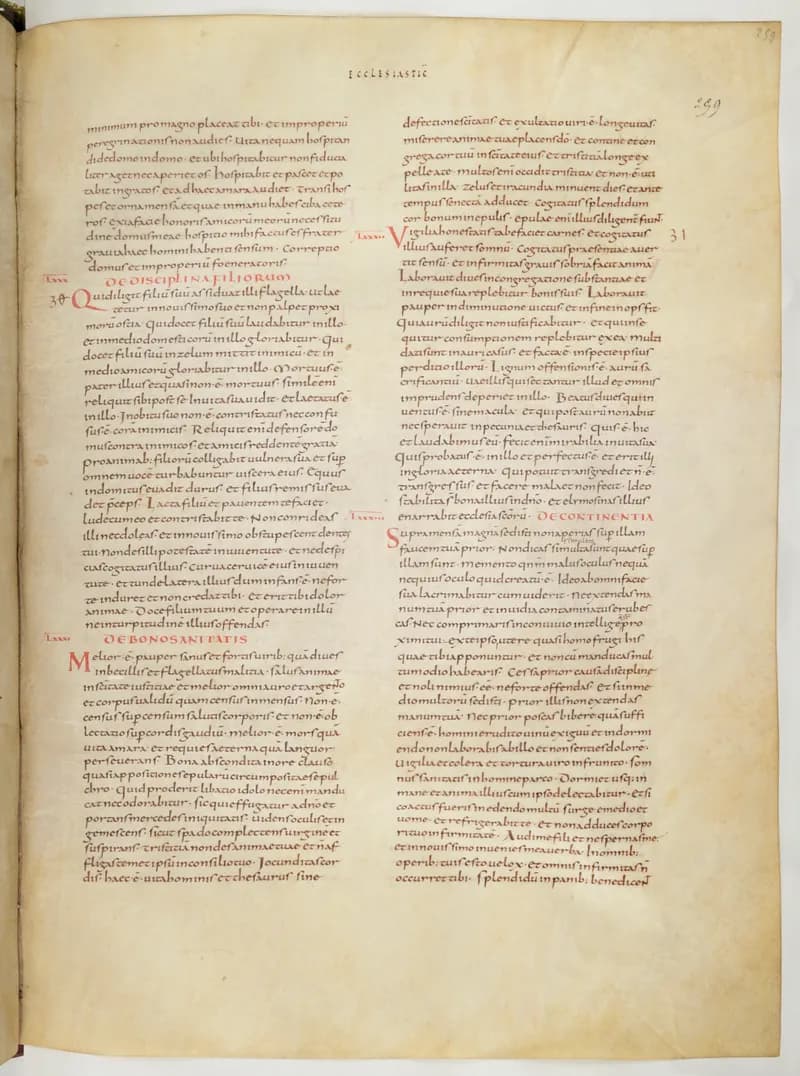 ECCLESIASTIC̄
259
299
minimum pro magno placeat tibi · Et improperiū
peregrinationis non audies · Uita nequam hospitan
di de domo in domo · Et ubi hospitabitur non fiducia
liter aget nec aperiet os · Hospitabitur et pascet et po
tabit ingratos · Et ad haec amara audiet · Transi hos
pes et orna mensā et quae in manu habes ciba cete
ros · Exi a facie honoris amicorū meorū necessitu
dine domus meae hospitio mihi factus es frater
grauia haec homini habenti sensum · Correptio
domus et improperiū foeneratoris ·
LXXX
DE DISCIPLINA FILIORUM
30
Qui diligit filiū suū assiduat illi flagella ut lae
tetur in nouissimo suo et non palpet proxi
morū ostia · Qui docet filiū suū laudabitur in illo ·
et in medio domesticorū in illo gloriabitur · Qui
docet filiū suū in zelum mittit inimicū · et in
medio amicorū gloriabitur in illo · Mortuus ē
pater illius et quasi non ē mortuus · similē enī
reliquit sibi post sē · In uita sua uidit · Et laetatus ē
in illo · In obitu suo non ē contristatus nec confu
sus ē corā inimicis · Reliquit enī defensorē do
mus contra inimicos et amicis reddentē gratiā ·
Pro animab; filiorū colligabit uulnera sua et sup
omnem uocē turbabuntur uiscera eius · Equus
indomitus euadit durus · Et filius remissus eua
det p̄ceps · Lacta filiū et pauentem te faciet ·
lude cum eo et contristabit te · Non conrideas
illi ne doleas et in nouissimo obstupescent dentes
tui · Non des illi potestatē in iuuentute · Et ne despi
cias cogitatus illius · Curua ceruicē eius in iuuen
tute · et tunde latera illius dum infans ē · ne for
te induret et non credat tibi · Et erit tibi dolor
animae · Doce filium tuum et operare in illū
ne in turpitudinē illius offendas ·
LXXXI
DE BONO SANITATIS
Melior ē pauper sanus et fortis uirib; quā diues
inbecillis et flagellatus malitia · Salus animae
in sc̄itate iustitiae et melior omni auro et argento
et corpus ualidū quam census inmensus · Non ē
census sup censum salutis corporis · et non ē ob
lectatio sup cordis gaudiū · melior ē mors quā
uita amara · et requies aeterna quā languor
perseuerans · Bona abscondita in ore clauso
quasi appositiones epularū circumpositae sepul
chro · Quid proderit libatio idolo nec enī mandu
cat nec odorabitur · sic qui effugatur a dn̄o et
portans mercedes iniquitatis · uidens oculis et in
gemescens · sicut spado complectens uirginē et
suspirans · Tristitiā non des animae tuae et n̄ af
fligas temet ipsū in consilio tuo · Iocunditas cor
dis · haec ē · uita hominis et thesaurus sine
defectione sc̄itatis et exultatio uiri · ē · longeuitas ·
miserere animae tuae placens dō · Et contine et con
grega cor tuū in sc̄itate eius et tristitiā longe ex
pelle a te · multos enī occidit tristitia · et non ē uti
litas in illa · Zelus et iracundia minuent dies · et ante
tempus senectā adducet · Cogitatus splendidum
cor bonum in epulis · epulae enī illius diligent fiunt
LXXXII
31
Vigilia honestatis tabefaciet carnes · Et cogitatus
illius auferet somnū · Cogitatus praesentiae auer
tit sensū · Et infirmitas grauis sobriā facit animā
Laborauit diues in congregatione substantiae et
in requie sua replebitur bonis suis · Laborauit
pauper in diminutione uictus et in fine inops fit ·
Qui aurū diligit non iustificabitur · et qui inse
quitur consumptionem replebitur ex ea · Multi
dati sunt in auri casus · et facta ē in specie ipsius
perditio illorū · Lignum offensionis ē · aurū sa
crificantiū · Uae illis qui sectantur illud et omnis
imprudens deperiet in illo · Beatus diues qui in
uentus ē sine macula · et qui post aurū non abiit
nec sperauit in pecunia et thesauris · Quis ē · hic
et laudabimus eū · fecit enī mirabilia in uita sua
Qui probatus ē · in illo et perfectus ē · et erit illi
in gloria aeterna · Qui potuit transgredi et n̄ ē
transgressus · et facere mala et non fecit · Ideo
stabilita s bona illius in dn̄o · Et elymosinas illius
LXXXIII
enarrabit ecclesia sc̄orū · DE CONTINENTIA
Supra mensā magnā sedisti non aperias sup illam
faucem tuā prior · Non dicas si multa sunt quae sup
illam sunt · memento qnm̄ malus oculus nequā
nequius oculo quid creatū ē · Ideo ab omni facie
sua lacrimabitur cum uiderit · Ne extendas ma
num tuā prior et inuidia contaminatus erubes
cas Nec comprimaris in conuiuio intellige pro
ximi tui · ex te ipso, utere quasi homo frugi his
quae tibi apponuntur · et non cū manducas mul
tum odio habearis · Cessa prior causā disciplinę
et noli nimius eē · ne forte offendas · Et si in me
dio multorū sedisti · prior illis non extendas
manum tuā · Nec prior poscas bibere · quā suffi
ciens ē · homini erudito uinū exiguū et in dormi
endo non laborabis ab illo et non senties dolorē ·
Uigilia et colera et tortura uiro infrunito · som
nus sanitatis in homine parco · Dormiet usq; in
mane et anima illius cum ipso delectabitur · Et si
coactus fueris in edendo multū surge e medio et
uome · Et refrigerabit te · Et non adduces corpo
ri tuo infirmitatē · Audi me fili et ne spernas me ·
et in nouissimo inuenies mea uerba · In omnib;
operib; tuis esto uelox · et omnis infirmitas n̄
occurret tibi · Splendidū in panib; benedicent